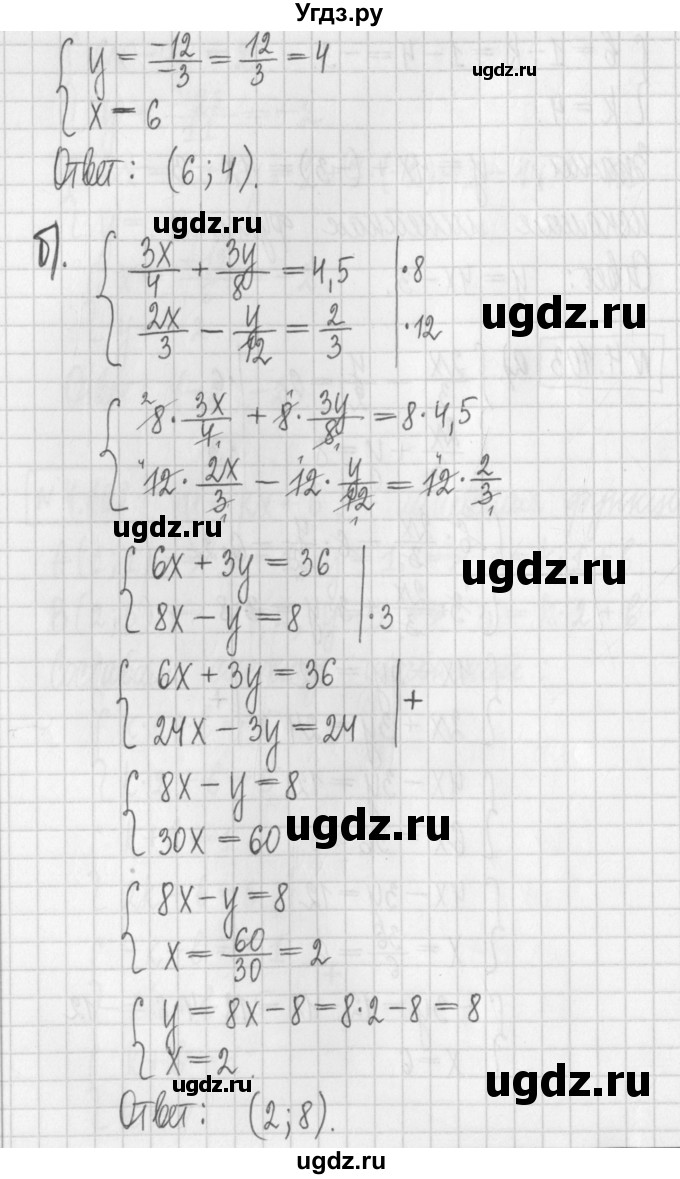 Угдз.ру
{ y = -12/-3 = 12/3 = 4
{ x = 6
ugdz.ru
Ответ: (6; 4).
ugdz.ru
б). { 3x/4 + 3y/8 = 4,5 | ·8
{ 2x/3 - y/12 = 2/3 | ·12
ugdz.ru
{ 8 · 3x/4 + 8 · 3y/8 = 8 · 4,5
{ 12 · 2x/3 - 12 · y/12 = 12 · 2/3
ugdz.ru
{ 6x + 3y = 36
{ 8x - y = 8 | ·3
ugdz.ru
{ 6x + 3y = 36
{ 24x - 3y = 24 | +
{ 8x - y = 8
{ 30x = 60
ugdz.ru
{ 8x - y = 8
{ x = 60/30 = 2
ugdz.ru
{ y = 8x - 8 = 8·2 - 8 = 8
{ x = 2.
ugdz.ru
ugdz.ru
Ответ: (2; 8).
ugdz.ru